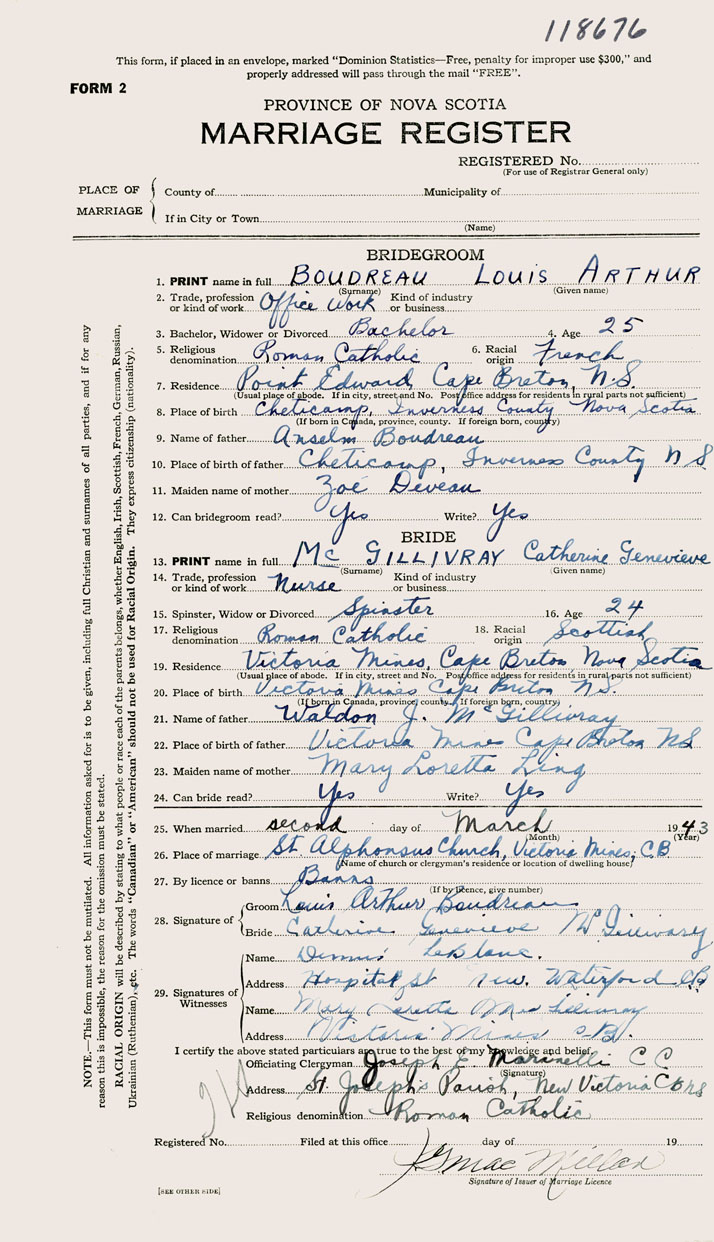 118676
This form, if placed in an envelope, marked "Dominion Statistics—Free, penalty for improper use $300," and
properly addressed will pass through the mail "FREE".
FORM 2
PROVINCE OF NOVA SCOTIA
MARRIAGE REGISTER
REGISTERED No.
(For use of Registrar General only)
PLACE OF MARRIAGE
County of Municipality of
If in City or Town
(Name)
BRIDEGROOM
1. PRINT name in full BOUDREAU LOUIS ARTHUR
(Surname) (Given name)
2. Trade, profession or kind of work Office Work Kind of industry or business
3. Bachelor, Widower or Divorced Bachelor 4. Age 25
5. Religious denomination Roman Catholic 6. Racial origin French
7. Residence Point Edward, Cape Breton, N.S.
(Usual place of abode. If in city, street and No. Post office address for residents in rural parts not sufficient)
8. Place of birth Cheticamp, Inverness County Nova Scotia
(If born in Canada, province, county. If foreign born, country)
9. Name of father Anselm Boudreau
10. Place of birth of father Cheticamp, Inverness County N S
11. Maiden name of mother Zoé Deveau
12. Can bridegroom read? Yes Write? Yes
BRIDE
13. PRINT name in full Mc GILLIVRAY Catherine Genevieve
(Surname) (Given name)
14. Trade, profession or kind of work Nurse Kind of industry or business
15. Spinster, Widow or Divorced Spinster 16. Age 24
17. Religious denomination Roman Catholic 18. Racial origin Scottish
19. Residence Victoria Mines, Cape Breton Nova Scotia
(Usual place of abode. If in city, street and No. Post office address for residents in rural parts not sufficient)
20. Place of birth Victoria Mines Cape Breton N.S.
(If born in Canada, province, county. If foreign born, country)
21. Name of father Waldon J. McGillivray
22. Place of birth of father Victoria Mines Cape Breton NS
23. Maiden name of mother Mary Loretta Ling
24. Can bride read? Yes Write? Yes
25. When married second day of March 1943
(Month) (Year)
26. Place of marriage St Alphonsus Church, Victoria Mines, C.B
(Name of church or clergyman's residence or location of dwelling house)
27. By licence or banns Banns
(If by licence, give number)
28. Signature of
Groom Louis Arthur Boudreau
Bride Catherine Genevieve McGillivary
29. Signatures of Witnesses
Name Dennis LeBlanc.
Address Hospital St New. Waterford C.B
Name Mary Loretta MacGillivray
Address Victoria Mines C.B.
I certify the above stated particulars are true to the best of my knowledge and belief.
Officiating Clergyman Joseph E Marinelli C C
(Signature)
Address St. Joseph's Parish, New Victoria C B N S
Religious denomination Roman Catholic
Registered No. Filed at this office day of 19
MacMillan
Signature of Issuer of Marriage Licence
[SEE OTHER SIDE]
NOTE.—This form must not be mutilated. All information asked for is to be given, including full Christian and surnames of all parties, and if for any
reason this is impossible, the reason for the omission must be stated.
RACIAL ORIGIN will be described by stating to what people or race each of the parents belongs, whether English, Irish, Scottish, French, German, Russian,
Ukrainian (Ruthenian), etc. The words "Canadian" or "American" should not be used for Racial Origin. They express citizenship (nationality).